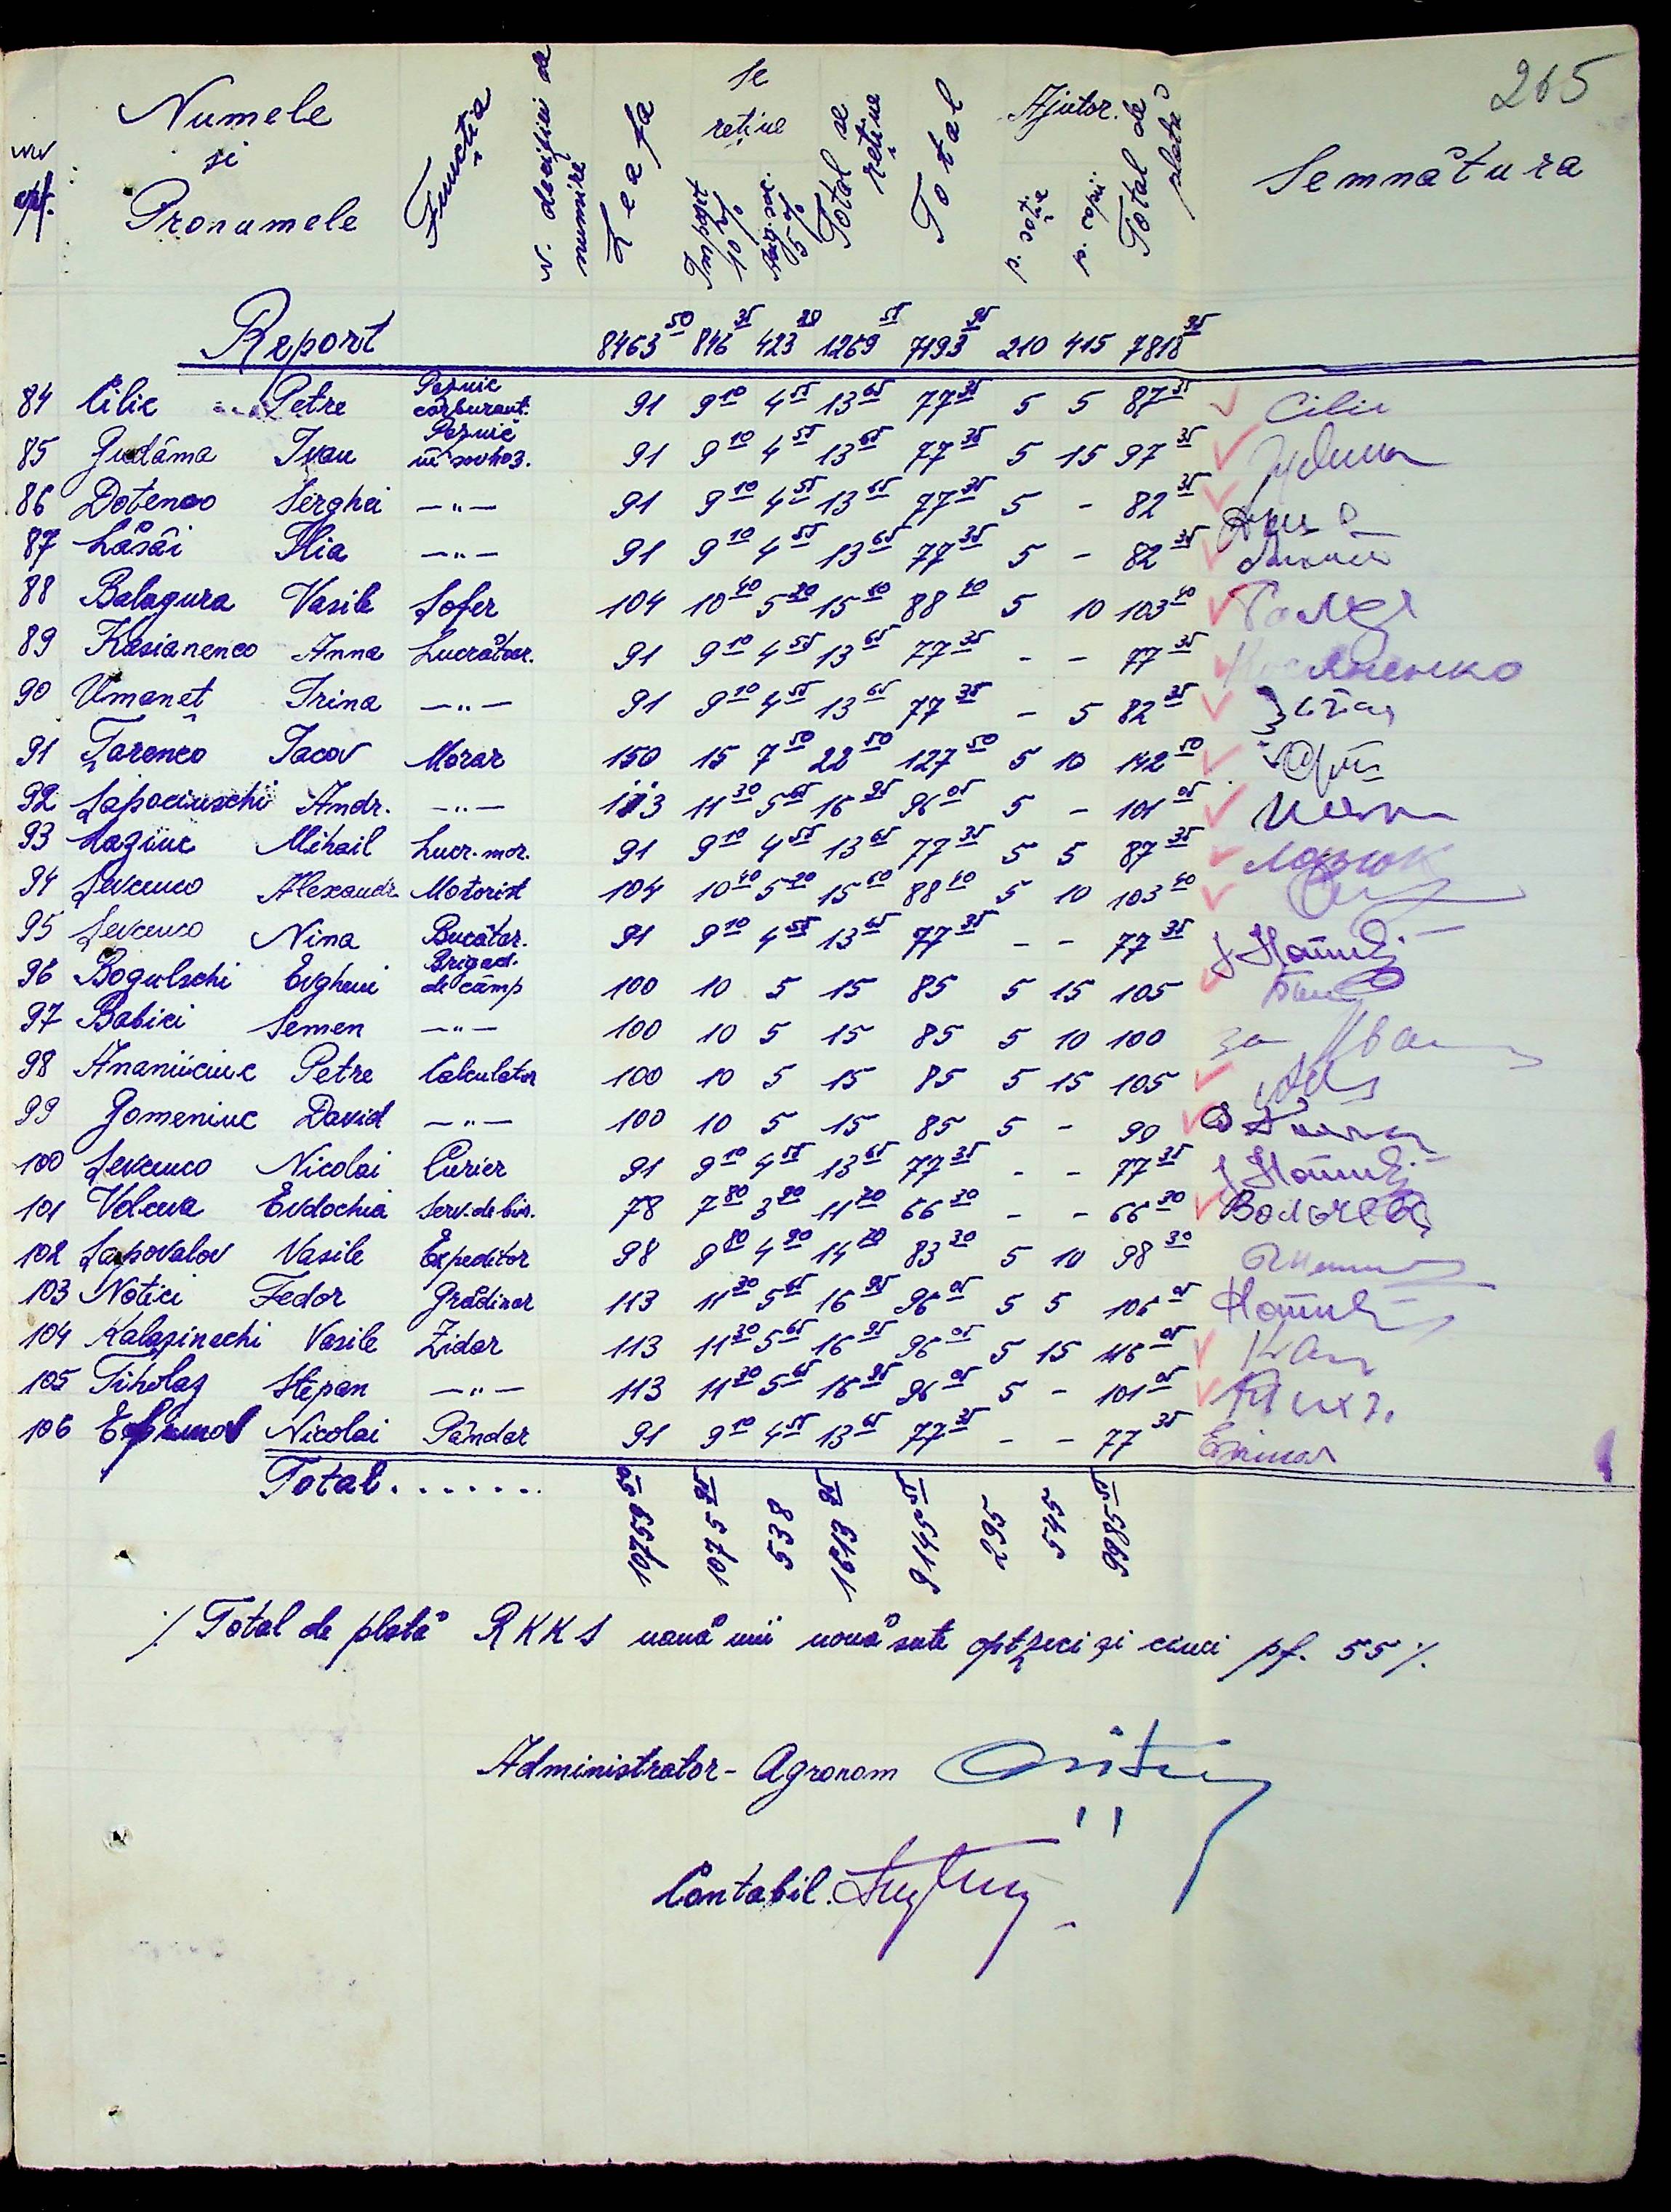 265
Numele și Pronumele Funcția Leafa Se reține Impozit 10% Asig. soc. 5% Total se reține Total Ajutor. p. soție p. copii Total de plată Semnătura
Report 8463 50 846 35 423 20 1269 55 7193 95 210 415 7818 95
84 Cilic Petre Paznic carburant. 91 9 10 4 55 13 65 77 35 5 5 87 35 Cilic
85 Gudâma Ivan Paznic în sovhoz. 91 9 10 4 55 13 65 77 35 5 15 97 35
86 Dotenco Serghei —"— 91 9 10 4 55 13 65 77 35 5 - 82 35
87 Lăsâi Ilia —"— 91 9 10 4 55 13 65 77 35 5 - 82 35
88 Balagura Vasile Șofer 104 10 40 5 20 15 60 88 40 5 10 103 40
89 Kasianenco Anna Lucrătoar. 91 9 10 4 55 13 65 77 35 - - 77 35
90 Umaneț Irina —"— 91 9 10 4 55 13 65 77 35 - 5 82 35
91 Țarenco Iacov Morar 150 15 7 50 22 50 127 50 5 10 142 50
92 Șapociuschi Andr. —"— 113 11 30 5 65 16 95 96 05 5 - 101 05
93 Laziuc Mihail Lucr. mor. 91 9 10 4 55 13 65 77 35 5 5 87 35 Лазюк
94 Șevcenco Alexandr Motorist 104 10 40 5 20 15 60 88 40 5 10 103 40
95 Șevcenco Nina Bucătar. 91 9 10 4 55 13 65 77 35 - - 77 35
96 Bogulschi Evgheni Brigad. de câmp 100 10 5 15 85 5 15 105
97 Babici Semen —"— 100 10 5 15 85 5 10 100 за
98 Ananiiciuc Petre Calculator 100 10 5 15 85 5 15 105
99 Gomeniuc David —"— 100 10 5 15 85 5 - 90
100 Șevcenco Nicolai Curier 91 9 10 4 55 13 65 77 35 - - 77 35
101 Volcova Evdochia Serv. de bir. 78 7 80 3 90 11 70 66 30 - - 66 30
102 Șapovalov Vasile Expeditor 98 9 80 4 90 14 70 83 30 5 10 98 30
103 Notici Fedor Grădinar 113 11 30 5 65 16 95 96 05 5 5 106 05
104 Kalazinschi Vasile Zidar 113 11 30 5 65 16 95 96 05 5 15 116 05
105 Tiholaz Stepan —"— 113 11 30 5 65 16 95 96 05 5 - 101 05
106 Nicolai Pândar 91 9 10 4 55 13 65 77 35 - - 77 35
Total....... 10759 50 1075 95 538 1613 95 9145 55 295 545 9985 55
/ Total de plată RKKS nouă mii nouă sute optzeci și cinci pf. 55 /.
Administrator - Agronom
Contabil.